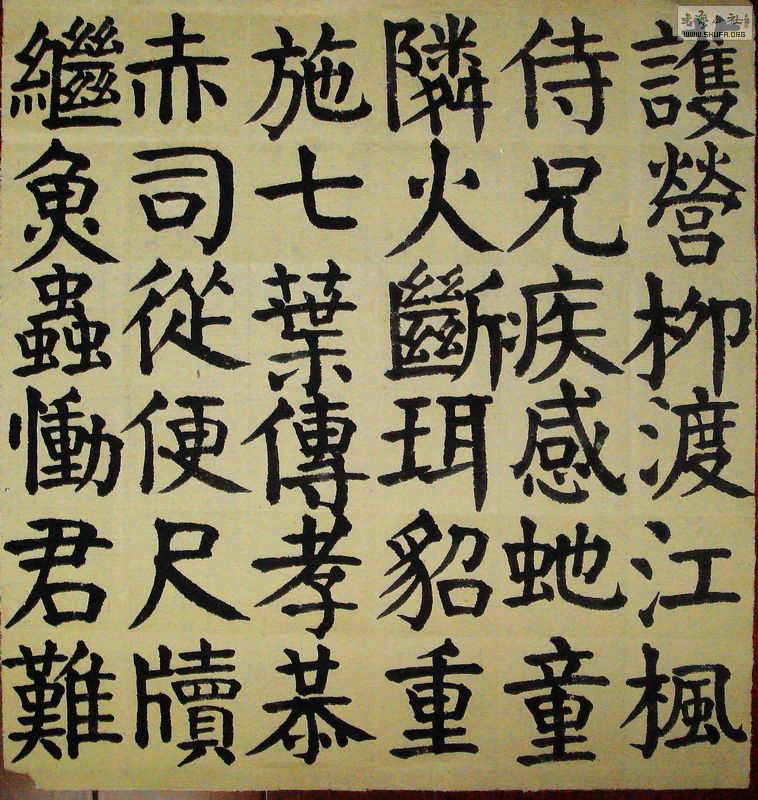 護營柳渡江楓
侍兄疾感虵童
隣火斷珥貂重
施七葉傳孝恭
赤司從便尺牘
繼魚蟲慟君難
書法公社
WWW.SHUFA.ORG